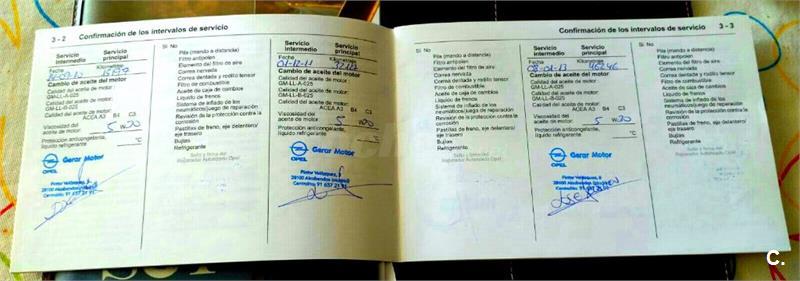 3 - 2 Confirmación de los intervalos de servicio
Servicio intermedio
Servicio principal
Fecha
Kilometraje
Cambio de aceite del motor
Calidad del aceite de motor:
GM-LL-A-025
Calidad del aceite del motor:
GM-LL-B-025
Calidad del aceite del motor:
ACEA A3 B4 C3
Viscosidad del
aceite de motor: 5 W 30
Protección anticongelante,
líquido refrigerante °C
OPEL Gerar Motor
Pintor Velázquez, 8
28100 Alcobendas (Madrid)
Centralita: 91 657 21 93
Sí No
Pila (mando a distancia)
Filtro antipolen
Elemento del filtro de aire
Correa nervada
Correa dentada y rodillo tensor
Filtro de combustible
Aceite de caja de cambios
Líquido de frenos
Sistema de inflado de los
neumáticos/juego de reparación
Revisión de la protección contra
la corrosión
Pastillas de freno, eje delantero/
eje trasero
Bujías
Refrigerante
Sello y firma del
Reparador Autorizado Opel
Servicio intermedio
Servicio principal
Fecha
Kilometraje
01-12-11
Cambio de aceite del motor
Calidad del aceite de motor:
GM-LL-A-025
Calidad del aceite del motor:
GM-LL-B-025
Calidad del aceite del motor:
ACEA A3 B4 C3
Viscosidad del
aceite de motor: 5 W 30
Protección anticongelante,
líquido refrigerante °C
OPEL Gerar Motor
Pintor Velázquez, 8
28100 Alcobendas (Madrid)
Centralita: 91 657 21 93
Confirmación de los intervalos de servicio 3 - 3
Sí No
Pila (mando a distancia)
Filtro antipolen
Elemento del filtro de aire
Correa nervada
Correa dentada y rodillo tensor
Filtro de combustible
Aceite de caja de cambios
Líquido de frenos
Sistema de inflado de los
neumáticos/juego de reparación
Revisión de la protección contra
la corrosión
Pastillas de freno, eje delantero/
eje trasero
Bujías
Refrigerante
Sello y firma del
Reparador Autorizado Opel
Servicio intermedio
Servicio principal
Fecha
Kilometraje
08-01-13 46246
Cambio de aceite del motor
Calidad del aceite de motor:
GM-LL-A-025
Calidad del aceite del motor:
GM-LL-B-025
Calidad del aceite del motor:
ACEA A3 B4 C3
Viscosidad del
aceite de motor: 5 W 30
Protección anticongelante,
líquido refrigerante °C
OPEL Gerar Motor
Pintor Velázquez, 8
28100 Alcobendas (Madrid)
Centralita: 91 657 21 93
Sí No
Pila (mando a distancia)
Filtro antipolen
Elemento del filtro de aire
Correa nervada
Correa dentada y rodillo tensor
Filtro de combustible
Aceite de caja de cambios
Líquido de frenos
Sistema de inflado de los
neumáticos/juego de reparación
Revisión de la protección contra
la corrosión
Pastillas de freno, eje delantero/
eje trasero
Bujías
Refrigerante
Sello y firma del
Reparador Autorizado Opel
C.